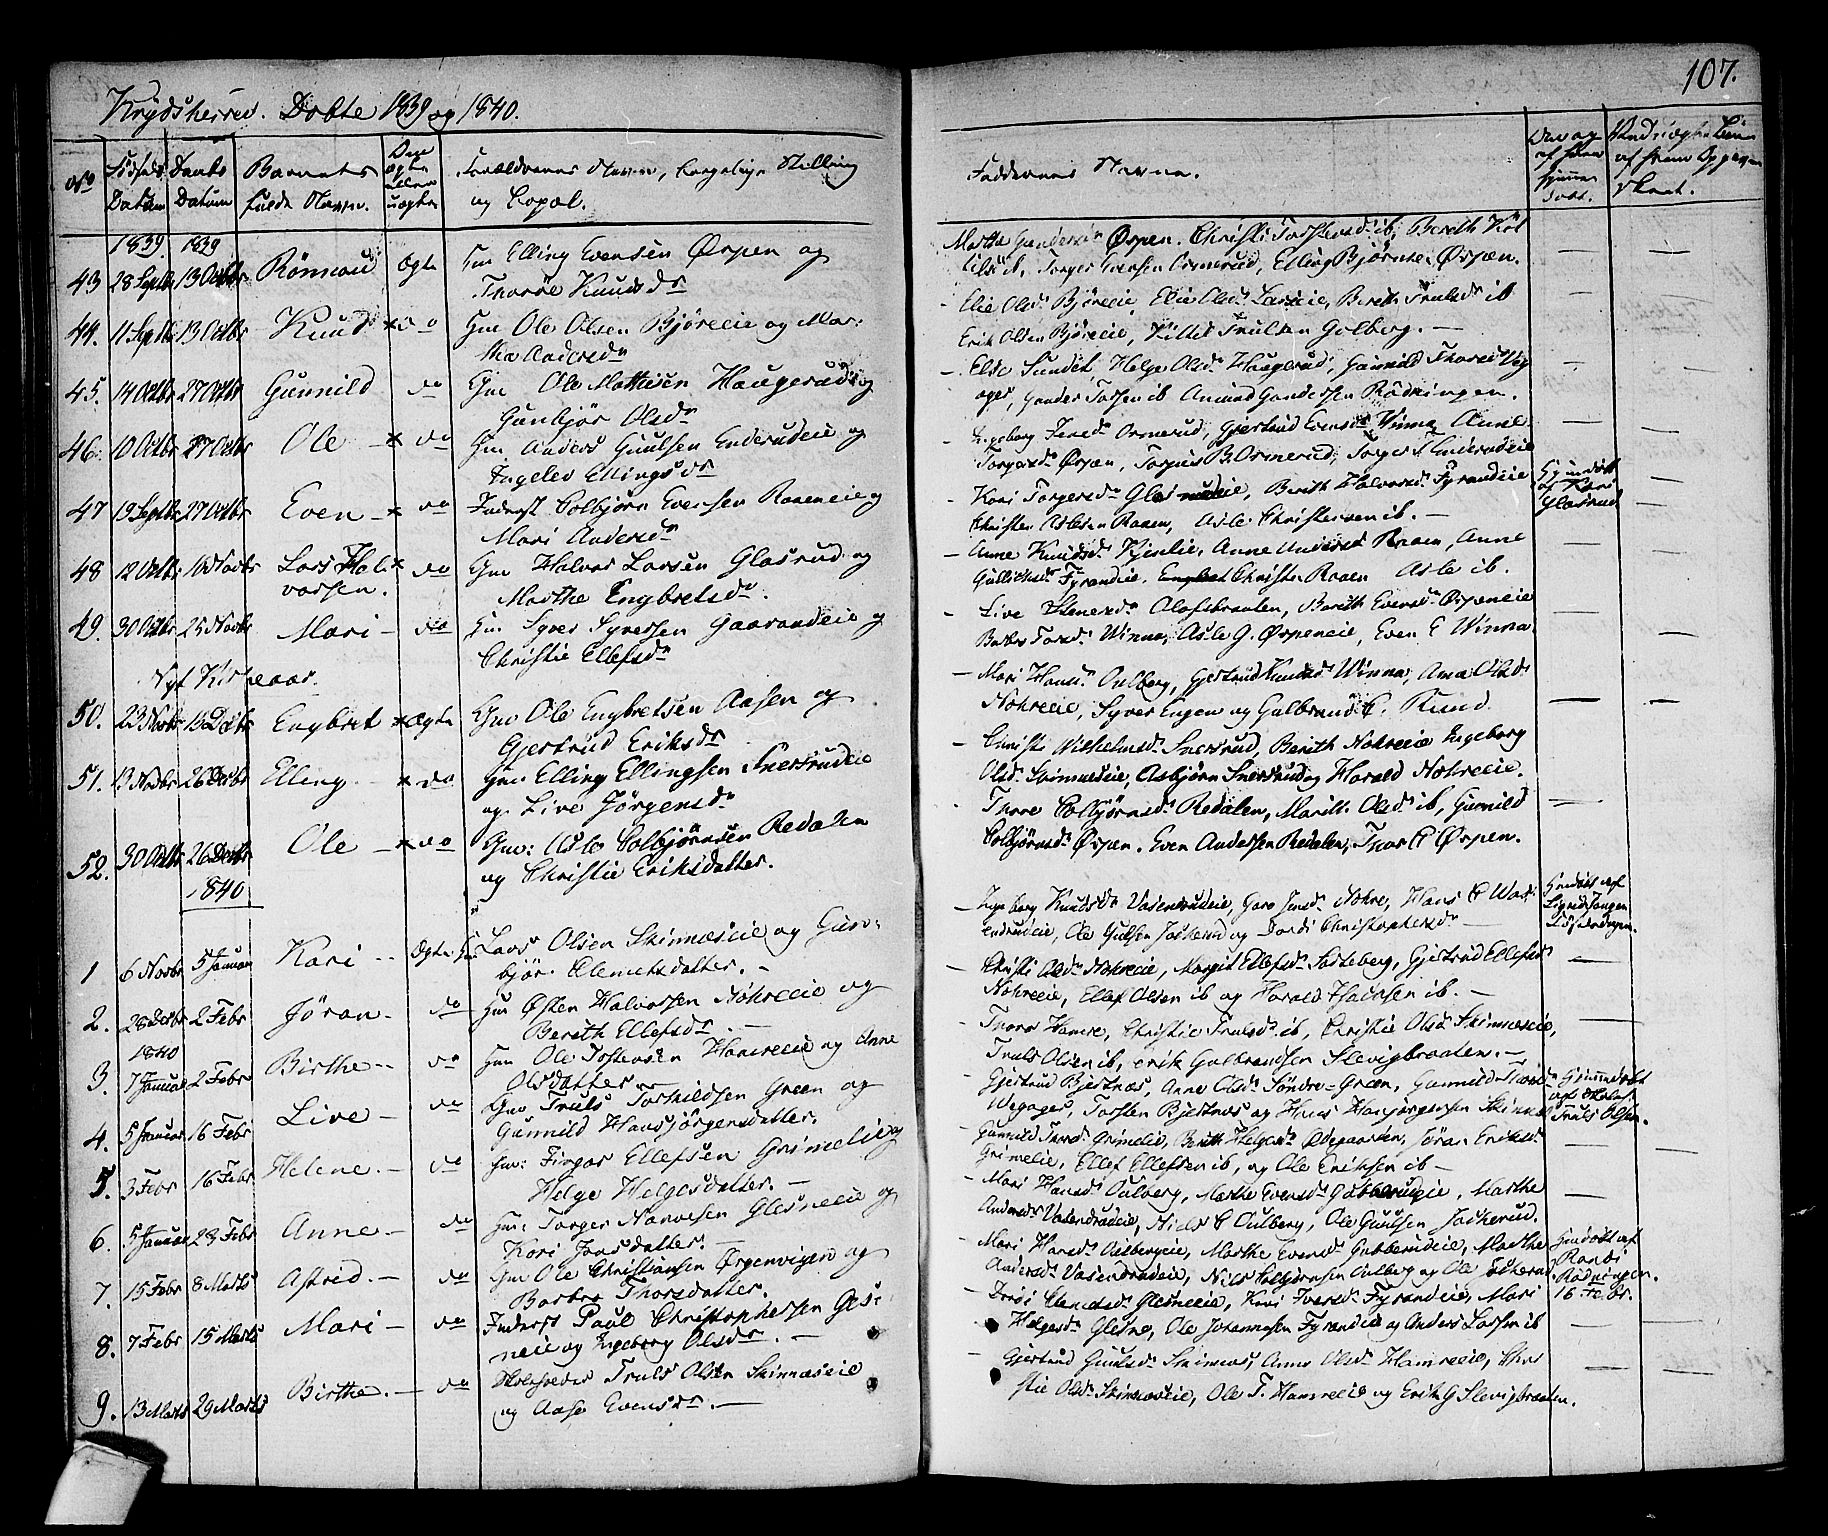 107.
Krydsherred. Døbte 1839 og 1840.
No Fødsels Datum Daabs Datum Barnets fulde Navn. Om ægte eller uægte Forældrenes Navne, borgelige Stilling og Bopæl.
Faddernes Navne.
1839. 1839
43 28 Septbr 13 Octbr Ægte Gm Elling Evensen Ørpen og
Thorøe Knudsdr
44. 11 Septbr 13 Octbr Knud do Gm Ole Olsen Bjøreeie og Mar:
tha Andersdr
45. 14 Octbr 27 Octbr Gunnild do Gm Ole Mattisen Haugerud og
Gunbjør Olsdr
46. 10 Octbr 27 Octbr Ole do Gm Anders Guulsen Enderudeie og
Ingelev Ellingsdr
47 19 Septbr 27 Octbr Even do Inderst Colbjørn Evensen Raaeneie og
Mari Andersdr
48 12 Octbr 10 Novbr Lars Hal:
vorsen. do Gm Halvor Larsen Glasrud og
Marthe Engbretsdr.
49. 30 Octbr 25 Novbr Mari do Gm Syver Syversen Gaarandeie og
Christie Ellefsdr
Nyt Kirkeaar.
50. 23 Novbr 15 Decbr Engbret Ægte Gm Ole Engbretsen Aasen og
Gjertrud Eriksdr
51. 13 Novbr 26 Decbr Elling do Gm Elling Ellingsen Snersrudeie
og Live Jørgensdr
52. 30 Octbr 26 Decbr Ole do Gm: Asle Colbjørnsen Redalen
og Christie Eriksdatter.
1840
1 6 Novbr 5 Januar Kari Ægte Gm Lars Olsen Skinneseie og Gun:
bjør Clemetsdatter.
2. 28 Decbr 2 Febr Jøran do Gm Østen Halvorsen Nohreeie og
Berith Ellefsdr.
1840
3 7 Januar 2 Febr Birthe do Gm Ole Tostensen Hamreeie og Anne
Olsdatter
4. 5 Januar 16 Febr Live do Gm Truls Torkildsen Green og
Gunnild Hansjørgensdatter.
5. 3 Febr 16 Febr Helene do Gm: Fingar Ellefsen Grimelie og
Helge Helgesdatter.
6. 5 Januar 23 Febr Anne do Gm: Torger Narvesen Glesneeie og
Kari Joensdatter.
7. 15 Febr 8 Marts Astrid do Gm Ole Christiansen Ørgenvigen og
Barbro Thorsdatter.
8. 7 Febr 15 Marts Mari do Inderst Paul Christophersen Gles:
neeie og Ingeborg Olsdr.
9. 13 Marts 29 Marts Birthe. do Skoleholder Truls Olsen Skinneseie
og Aase Evensdr.
Martha Gundersdr Ørpen. Christi Torstensdr ib, Berith
ib, Torger Evensen Ormerud, Elling Bjørnsen Ørpen.
Elie Olsdr Bjøreeie, Elie Olsdr Lareie, Berith Trulsdr ib
Erik Olsen Bjøreeie, Kittil Trulsen Golberg.
Else Sundet, Helge Olsdr Haugerud, Gunnild Thoresdr Veg
ager, Gunder Torsen ib Amund Gundersen Rødningen.
Ingeborg Ormerud, Gjertrud Evensdr Winna, Anne
Torgersdr Ørpen, Torgius B. Ormerud, Torger T. Enderudeie
Kari Torgersdr Glasrudeie, Berith Halvorsdr Fyrandeie
Christen Aslesen Raaen, Asle Christensen ib.
Hjemdøbt
af Kari
Glasrud
Anne Knudsdr Kjenlie, Anne Andersdr Raaen, Anne
Gullichsdr Fyrandeie, Christen Raaen Asle ib.
Live Stenersdr Olafsbraaten, Berith Evensdr Ørpeneie
Barbro Torsdr Winna, Asle G. Ørpeneie, Even E Winna.
Mari Hansdr Oulberg, Gjertrud Knudsdr Winna, Anne Olsdr
Nohreeie, Syver Engen og Gulbrand C. Rund.
Christi Wilhelmsdr Snersrud, Berith Nohreeie Ingeborg
Olsdr Skinneseie, Asbjørn Snersrud og Harald Nohreeie.
Thore Colbjørnsdr Redalen, Marith Olsdr ib, Gunnild
Colbjørnsdr Ørpen. Even Andersen Redalen, Thor Ørpen.
Ingeborg Knudsdr Vasendrudeie, Nohre, Hans C Was:
endrudeie, Ole Gulsen Jockerud og Dordi Christophersdr
Christi Olsdr Nohreeie, Margit Ellefsdr Sateberg, Gjertrud Ellefsdr
Nohreeie, Ellef Olsen ib og Harald ib.
Thora Hamre, Christie Trulsdr ib, Christie Olsdr Skinneseie,
Truls Olsen ib, Erik Gulbrandsen Slevigbraaten.
Gjertrud Bjertnæs, Anne Olsdr Søndre-Green, Gunnild
Wegager, Torsten Bjertnæs og Hans Hansjørgensen Skinnes
Hjemmedøbt
af Skolel.
Truls Olsen.
Gunnild Torsdr Grimelie, Berith Helgesdr Ødegaarden, Jøran Eriksdr
Grimelie, Ellef Ellefsen ib, og Ole Eriksen ib
Mari Hansdr Oulberg, Marthe Evensdr Gubberudeie, Marthe
Andersdr Vasendrudeie, Niels C Oulberg, Ole Guulsen Jockerud.
Mari Hansdr Oulbergeie, Marthe Evensdr Gubberudeie, Marthe
Andersdr Vasendrudeie, Niels Colbjørnsen Oulberg og Ole Jockerud.
Hjemdøbt af
Randi
Rødningen.
16 Febr.
Dordi Clemetsdr Glesneeie, Kari Iversdr Fyrandeie, Mari
Helgesdr Glesne, Ole Johannesen Fyrandeie og Anders Larsen ib
Gjertrud Guulsdr Skinnes, Anne Olsdr Hamreeie, Chri
stie Olsdr Skinneseie, Ole T. Hamreeie og Erik G Slevigbraaten.